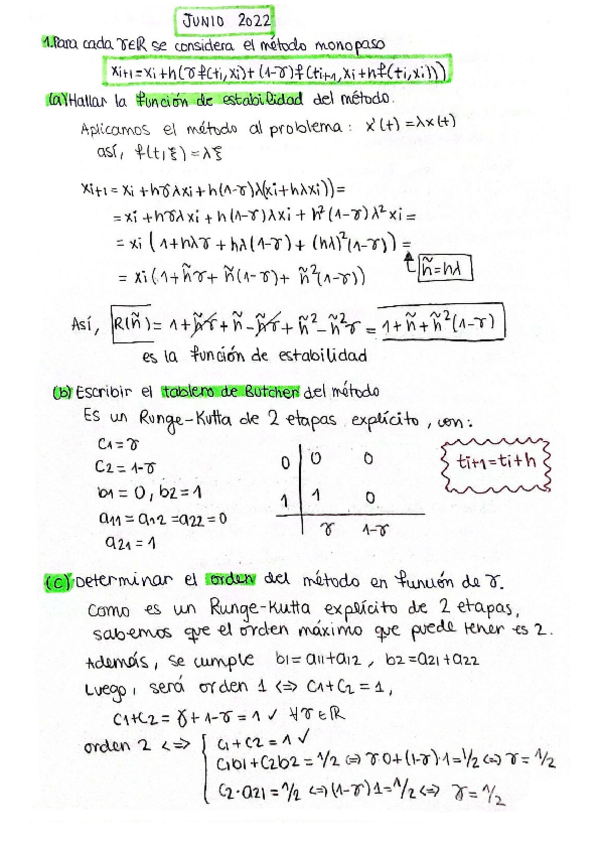 JUNIO 2022
1. Para cada γ∈R se considera el método monopaso
xi+1 = xi + h(γf(ti,xi) + (1-γ)f(ti+1, xi + hf(ti,xi)))
(a) Hallar la función de estabilidad del método.
Aplicamos el método al problema: x'(t) = λx(t)
así, f(t,ξ) = λξ
xi+1 = xi + hγλxi + h(1-γ)λ(xi + hλxi)) =
= xi + hγλxi + h(1-γ)λxi + h²(1-γ)λ²xi =
= xi (1 + hλγ + hλ(1-γ) + (hλ)²(1-γ)) =
= xi (1 + h̃γ + h̃(1-γ) + h̃²(1-γ)) h̃ = hλ
Así, R(h̃) = 1 + h̃γ + h̃ - h̃γ + h̃² - h̃²γ = 1 + h̃ + h̃²(1-γ)
es la función de estabilidad
(b) Escribir el tablero de Butcher del método
Es un Runge-Kutta de 2 etapas explícito, con:
c1 = γ
c2 = 1-γ
b1 = 0, b2 = 1
a11 = a12 = a22 = 0
a21 = 1
0 | 0 0
1 | 1 0
γ 1-γ
ti+1 = ti + h
(c) Determinar el orden del método en función de γ.
Como es un Runge-Kutta explícito de 2 etapas,
sabemos que el orden máximo que puede tener es 2.
Además, se cumple b1 = a11 + a12, b2 = a21 + a22
Luego, será orden 1 <=> c1 + c2 = 1,
c1 + c2 = γ + 1 - γ = 1 ✓ ∀γ∈R
orden 2 <=> { c1 + c2 = 1 ✓
c1b1 + c2b2 = 1/2 <=> γ·0 + (1-γ)·1 = 1/2 <=> γ = 1/2
c2·a21 = 1/2 <=> (1-γ)1 = 1/2 <=> γ = 1/2